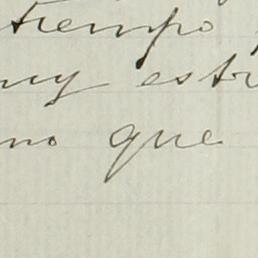 tiempo
muy estr
no que